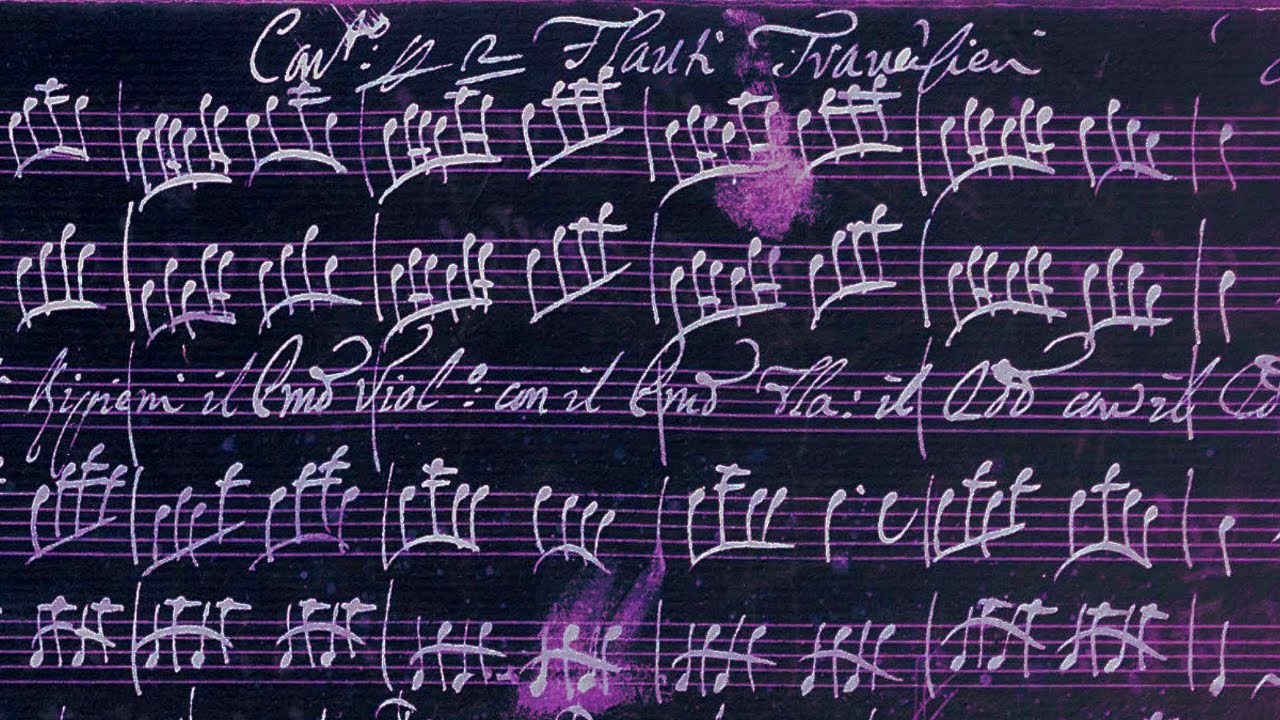 Con.to p 2 Flauti Traversieri
Ripieni il Pmo Viol.o: con il Pmo Fla: il 2do con il